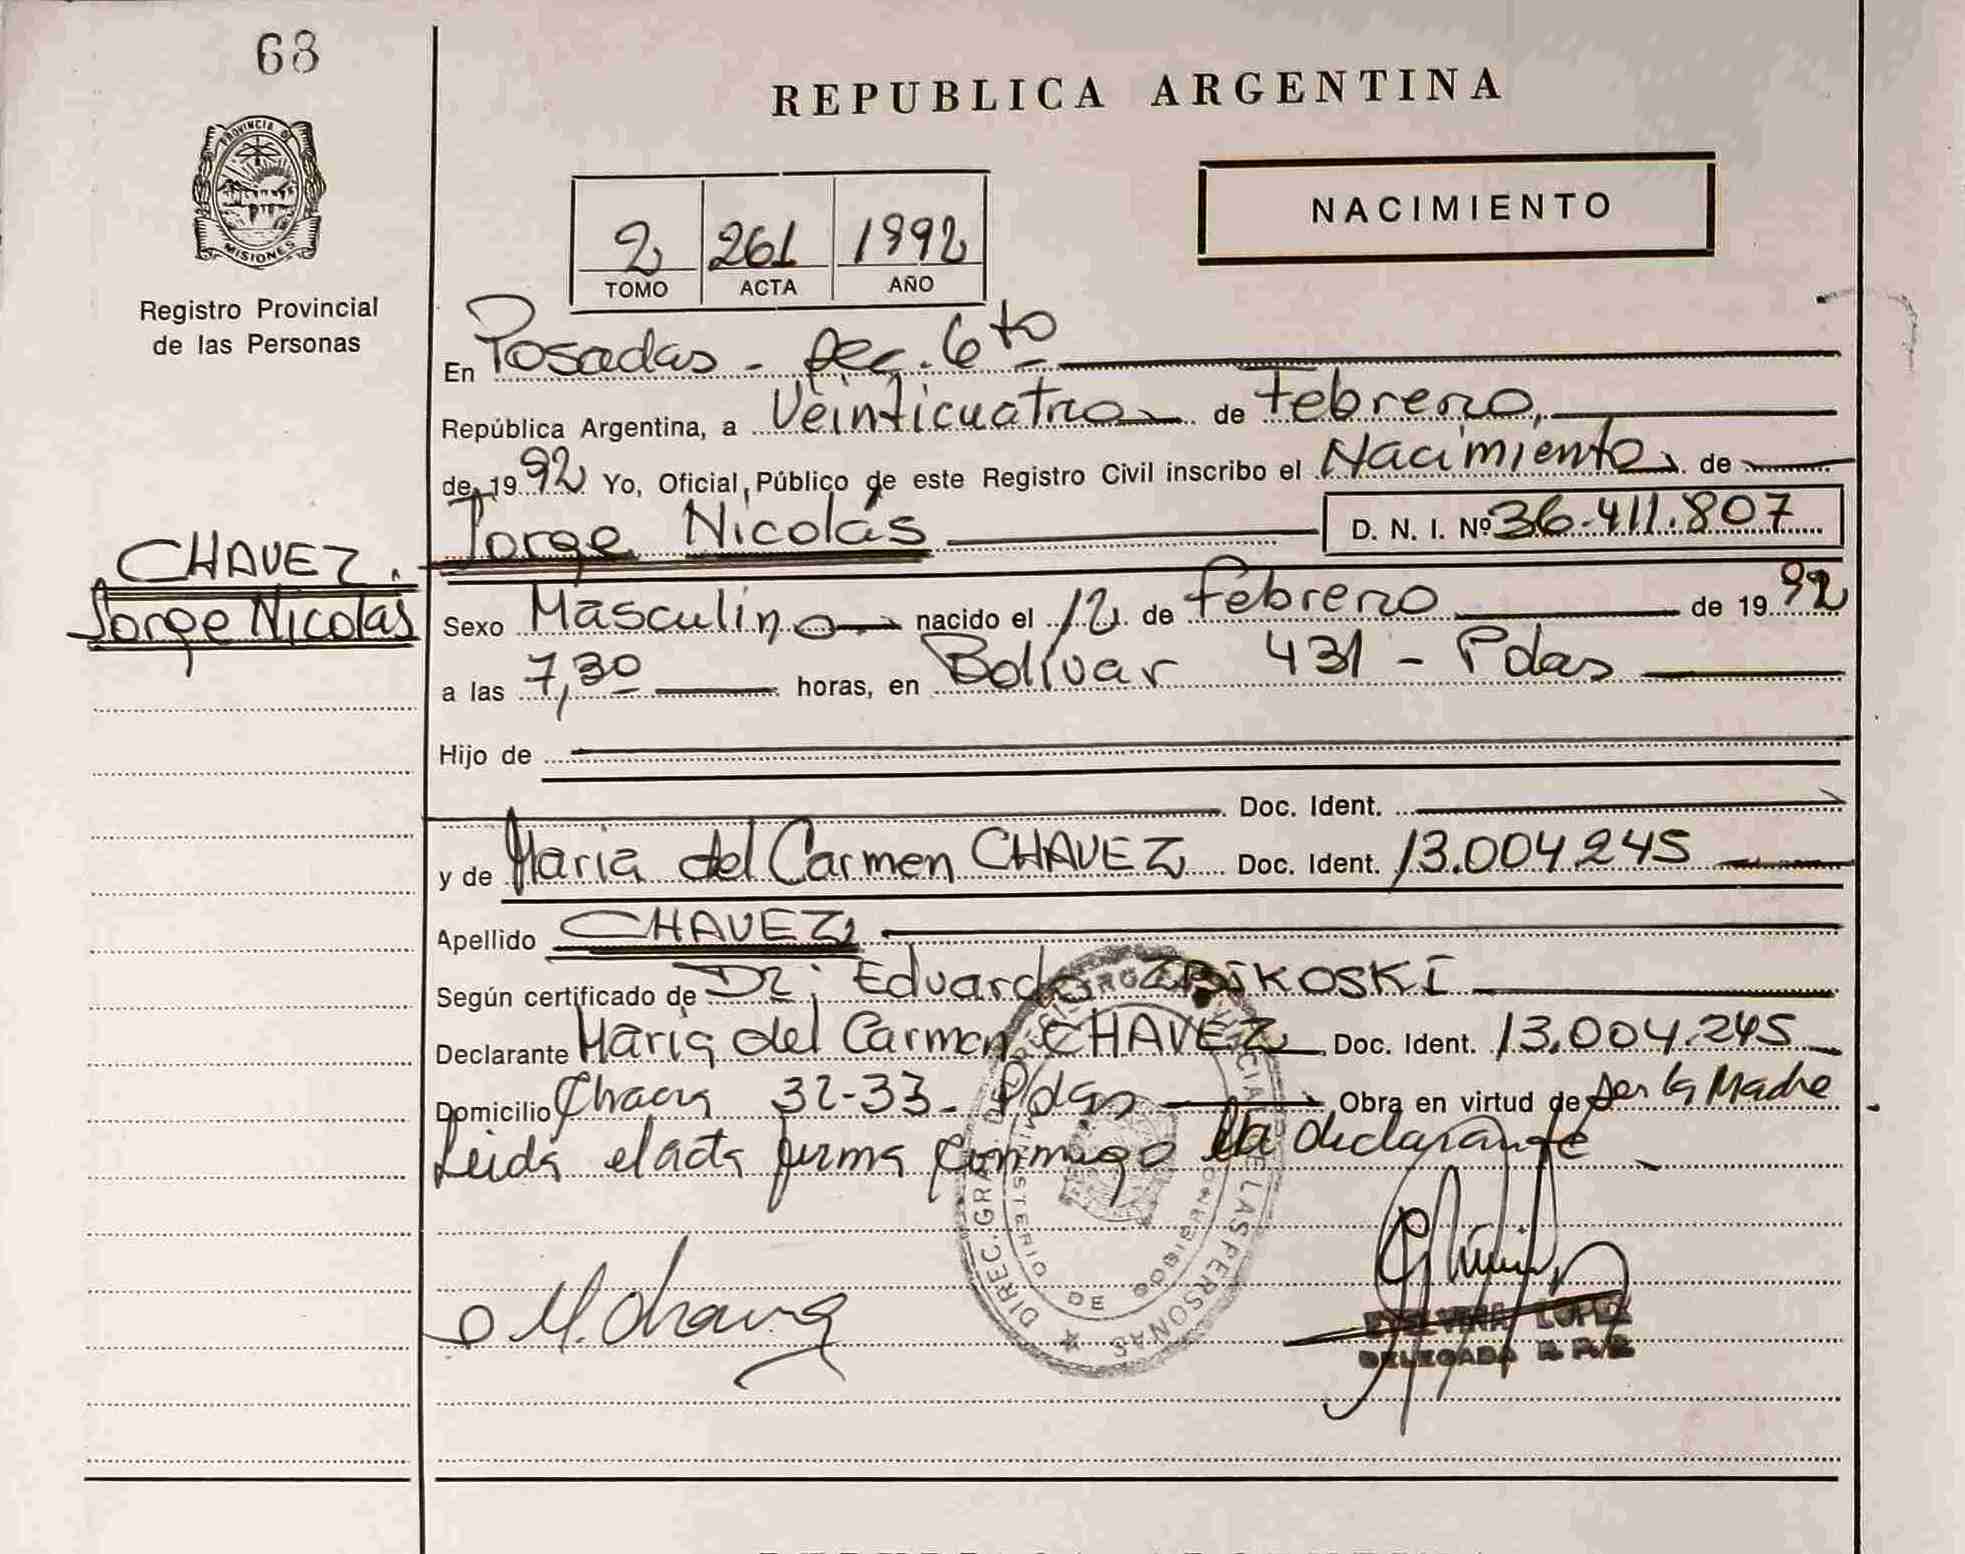 68
PROVINCIA DE
MISIONES
Registro Provincial
de las Personas
CHAVEZ.
Jorge Nicolás
REPUBLICA ARGENTINA
NACIMIENTO
2 261 1992
TOMO ACTA AÑO
En Posadas - Sec. 6to
República Argentina, a Veinticuatro de Febrero,
de 1992 Yo, Oficial Público de este Registro Civil inscribo el Nacimiento de
Jorge Nicolás D. N. I. Nº 36.411.807
Sexo Masculino nacido el 12 de Febrero de 1992
a las 7,30 horas, en Bolívar 431 - Pdas
Hijo de
Doc. Ident.
y de Maria del Carmen CHAVEZ Doc. Ident. 13.004.245
Apellido CHAVEZ
Según certificado de Dr. Eduardo ZBIKOSKI
Declarante Maria del Carmen CHAVEZ Doc. Ident. 13.004.245
Domicilio Chacra 32-33- Pdas Obra en virtud de ser la Madre
Leida el acta firma conmigo la declarante
M. Chavez
LOPEZ
DELEGADA R. P. P.
DIREC. GRAL. DE LAS PERSONAS
MINISTERIO DE GOBIERNO